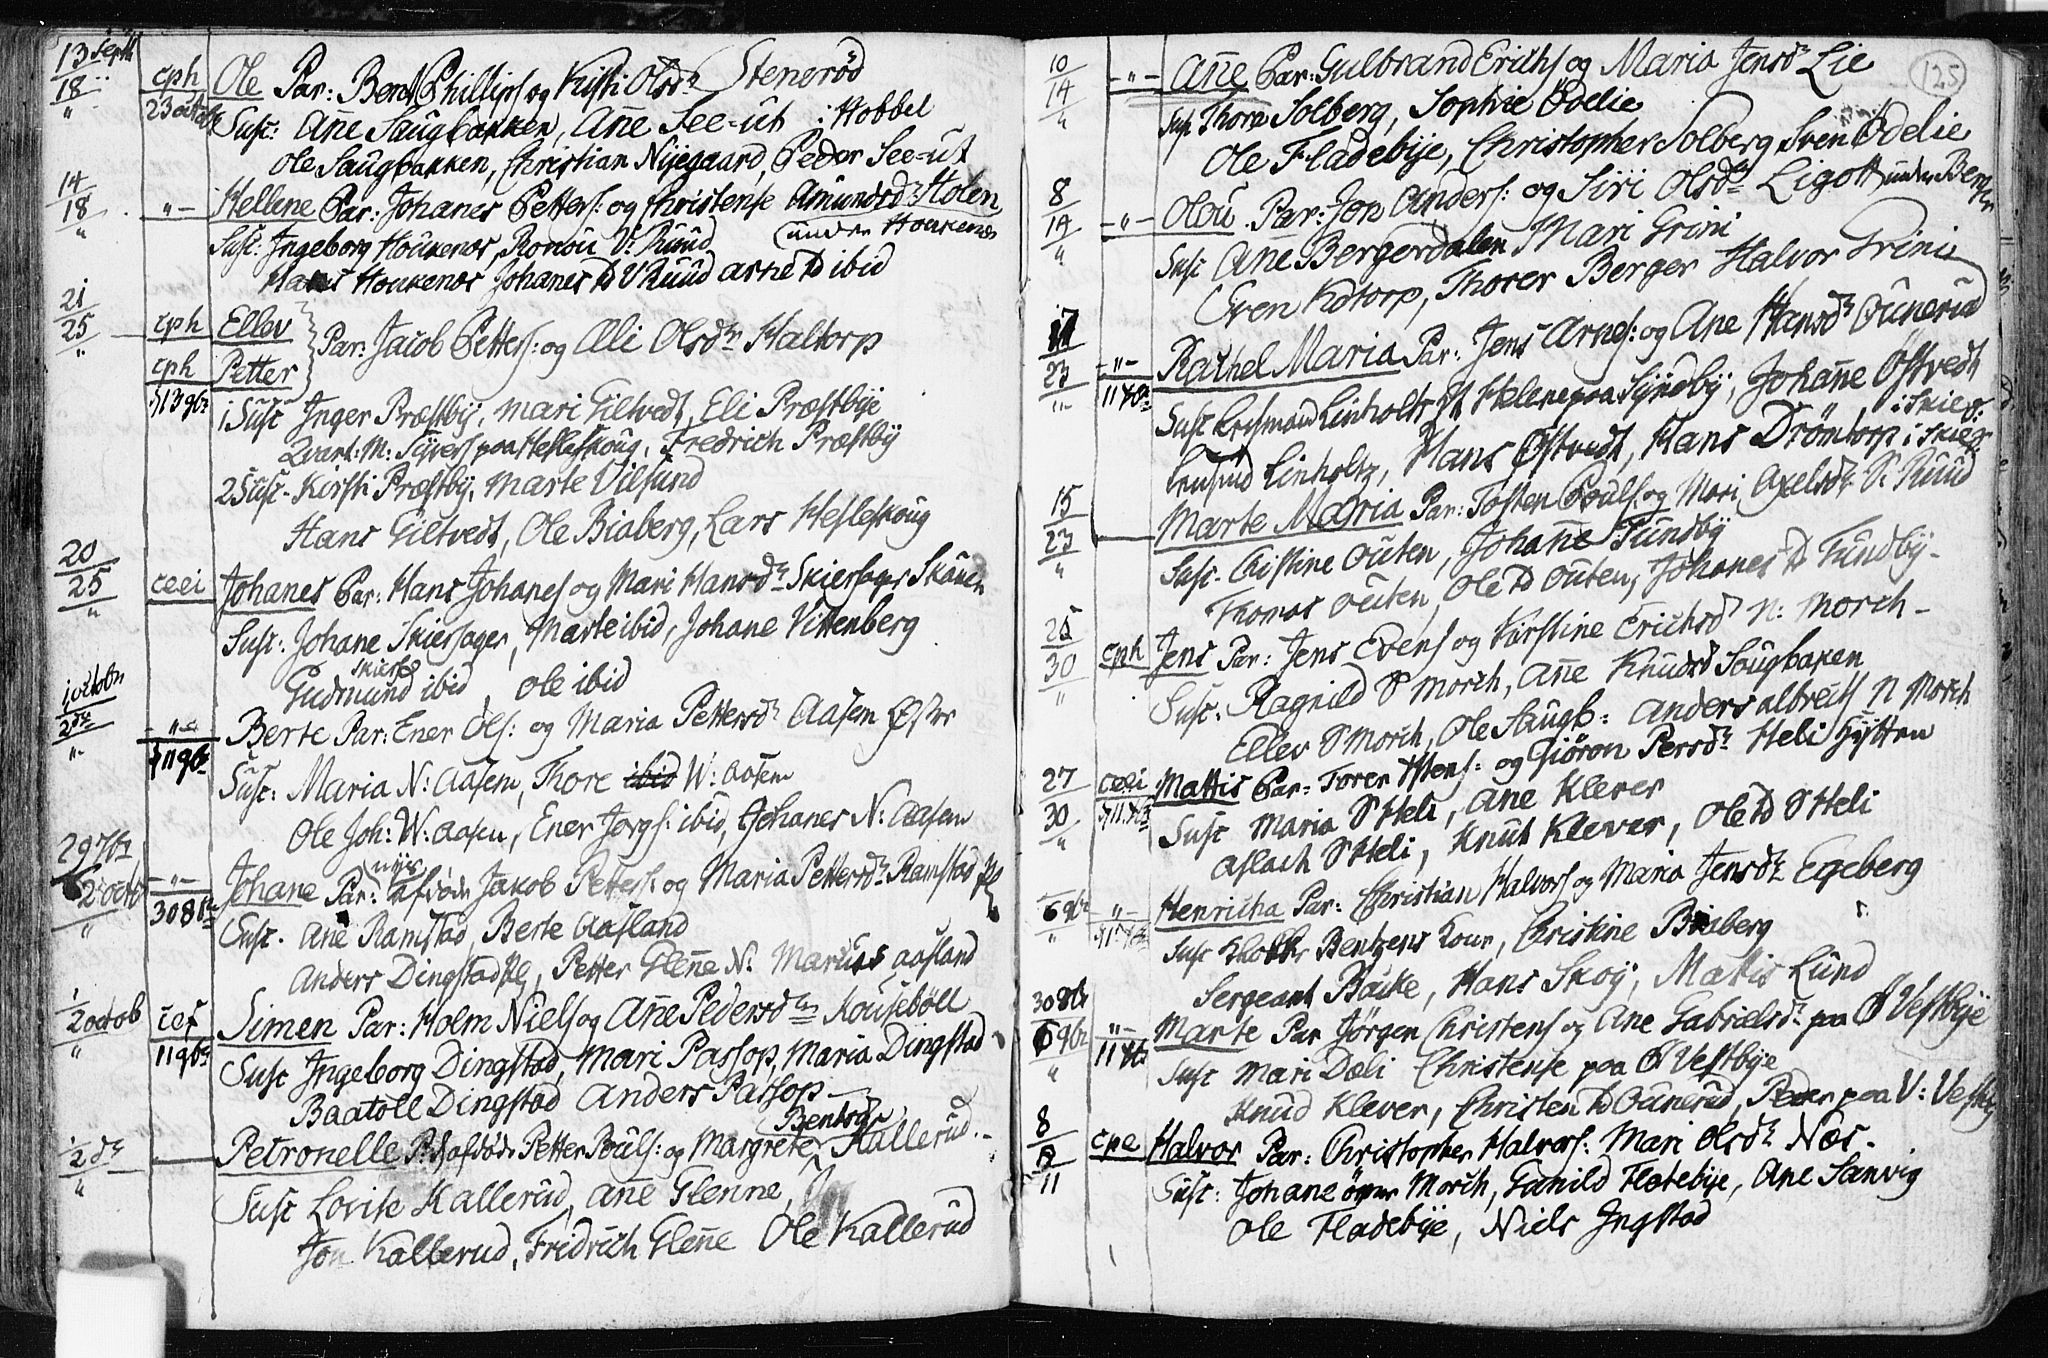 13 Septb
18
cph
Ole Par: Bent Phillips og Kisti Olsdr Stensrød
23 octob
Susc: Ane Saugbakken, Añe See-ut i Hobbel
Ole Saugbakken, Christian Nijegaard, Peder See-ut
14
18
-"-
Hellene Par: Johanes Petters: og Christense Amundsdr Holen
under Houkenes
Susc: Ingeborg Houkenes, Ronou V: Ruud
Hans Houkenes Johanes td V Ruud Arne td ibid
21
25
cph
Ellev
Par: Jacob Petters: og Eli Olsdr Haltorp
cph
Petter
13 9br
1 Susc Inger Præstby, Mari Giltvedt, Eli Præstbije
M: Sivers paa Helleskoug, Fredrich Præstbij
2 Susc. Kirsti Præstbij, Marte Vilsund
Hans Giltvedt, Ole Biaberg, Lars Hesleskoug
20
25
ceei
Johanes Par: Hans Johanes og Mari Hansdr Skiersager Skouen
Susc: Johane Skiersager, Marte ibid, Johane Vittenberg
Gudmund ibid, Ole ibid
1 octobr
2de
-"-
Berte Par: Ener Ols: og Maria Pettersdr Aasen Østre
11 9br
Susc: Maria N: Aasen, Thore ibid W: Aasen
Ole Joh: W: Aasen, Ener Jorgs: ibid, Johanes N: Aasen
29 7br
2 octob
-"-
nijs
Johane Par: afdøde Jakob Petters: og Maria Pettersdr Ramstad Pl
30 8br
Susc. Ane Ramstad, Berte Aasland
Anders Dingstad Pl, Petter Gleñe N: Marius Aasland
1
2 octob
cef
Simen Par: Holm Niels og Añe Pedersdtr Kousebøll
11 9br
Susc Ingeborg Dingstad, Mari Passop, Maria Dingstad
Baatoll Dingstad Anders Passop
Bentsdr
1
2 dr
Petronelle P: afdøde Petter Pouls: og Margrete Kallerud.
Susc Lovise Kallerud, Añe Glenne,
Jon Kallerud, Fridrich Gleñe Ole Kallerud
125
10
14
-"-
Añe Par: Gulbrand Erichs og Maria Jensdr Lie
Susc Thora Solberg, Sophie Odelie
Ole Fladebije, Christopher Solberg Sven Odelie
8
14
-"-
Olou Par: Jon Anders: og Siri Olsdr Ligott under Berger
Susc Ane Bergerdalen Mari Grini
Even Kotorp, Thorer Berger Halvor Grini
17
23
-"-
Rachel Maria Par: Jens Arnes: og Ane Hansdr Ounerud
Susc Linholt Helene paa Syndby, Johañe Østvedt
i Skie
Linholtz, Hans Østvedt, Hans Drömtorp i Skie
15
23
Marte Maria Par: Tosten Pouls: og Mari Axelsdr S: Ruud
Susc. Christine Outen, Johañe Sundby
Thomas Outen, Ole td Outen, Johanes td Sundby
25
30
cph
Jens Par: Jens Evens og Karstine Erichsd N: Morch
Susc. Ragnild S Morch, Añe Knudsd Saugbaken
Ellev S Morch, Ole Saugb: Anders Albrechts N Morch
27
30
ceei
Mattis Par: Torer Ystens: og Giöron Persdr Heli Hytten
Susc Maria S Heli, Ane Klever
Aslach S Heli, Knut Klever, Ole td S Heli
6 9br
-"-
Henricha Par: Christian Halvors og Maria Jensdr Egeberg
Susc Bentzens Kone, Christine Biaberg
Sergeant Backe, Hans Skog, Mattis Lund
30 8br
6 9br
-"-
11
Marte Par Jörgen Christens og Ane Gabrielsdr paa Ø Vestbije
Susc Mari Dæli Christense paa Ø Vestbije
Knud Klever, Christen td Ounerud, Peder paa V: Vestby
8
11
cpe
Halvor Par: Christopher Halvors: Mari Olsdr Næs.
Susc: Johane Morch, Gunild Flatebije, Ane Sanvig
Ole Fladebije, Niels Ingstad